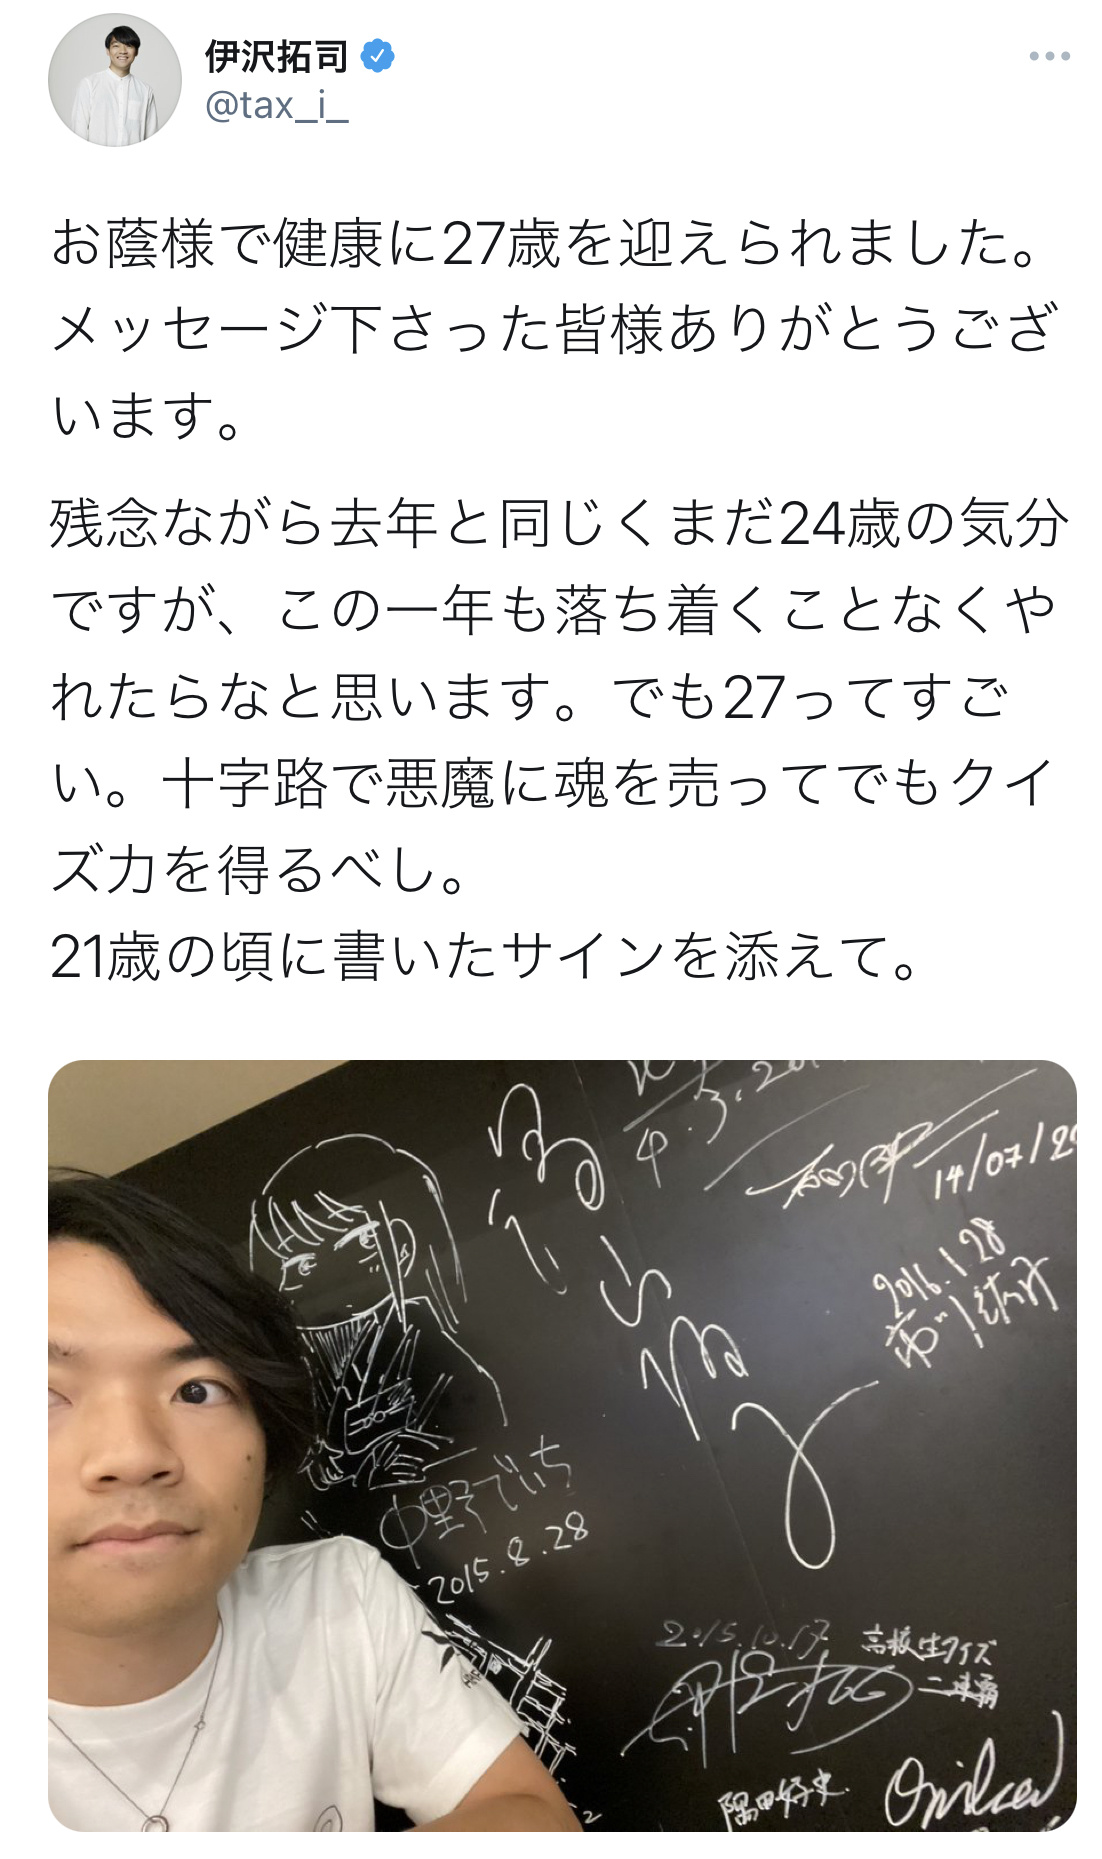 伊沢拓司
@tax_i_
お蔭様で健康に27歳を迎えられました。
メッセージ下さった皆様ありがとうござ
います。
残念ながら去年と同じくまだ24歳の気分
ですが、この一年も落ち着くことなくや
れたらなと思います。でも27ってすご
い。十字路で悪魔に魂を売ってでもクイ
ズ力を得るべし。
21歳の頃に書いたサインを添えて。
14/07/2
2016.1.28
中野でいち
2015.8.28
2015.10.17
高校生クイズ
二連覇
伊沢拓司
隅田好史